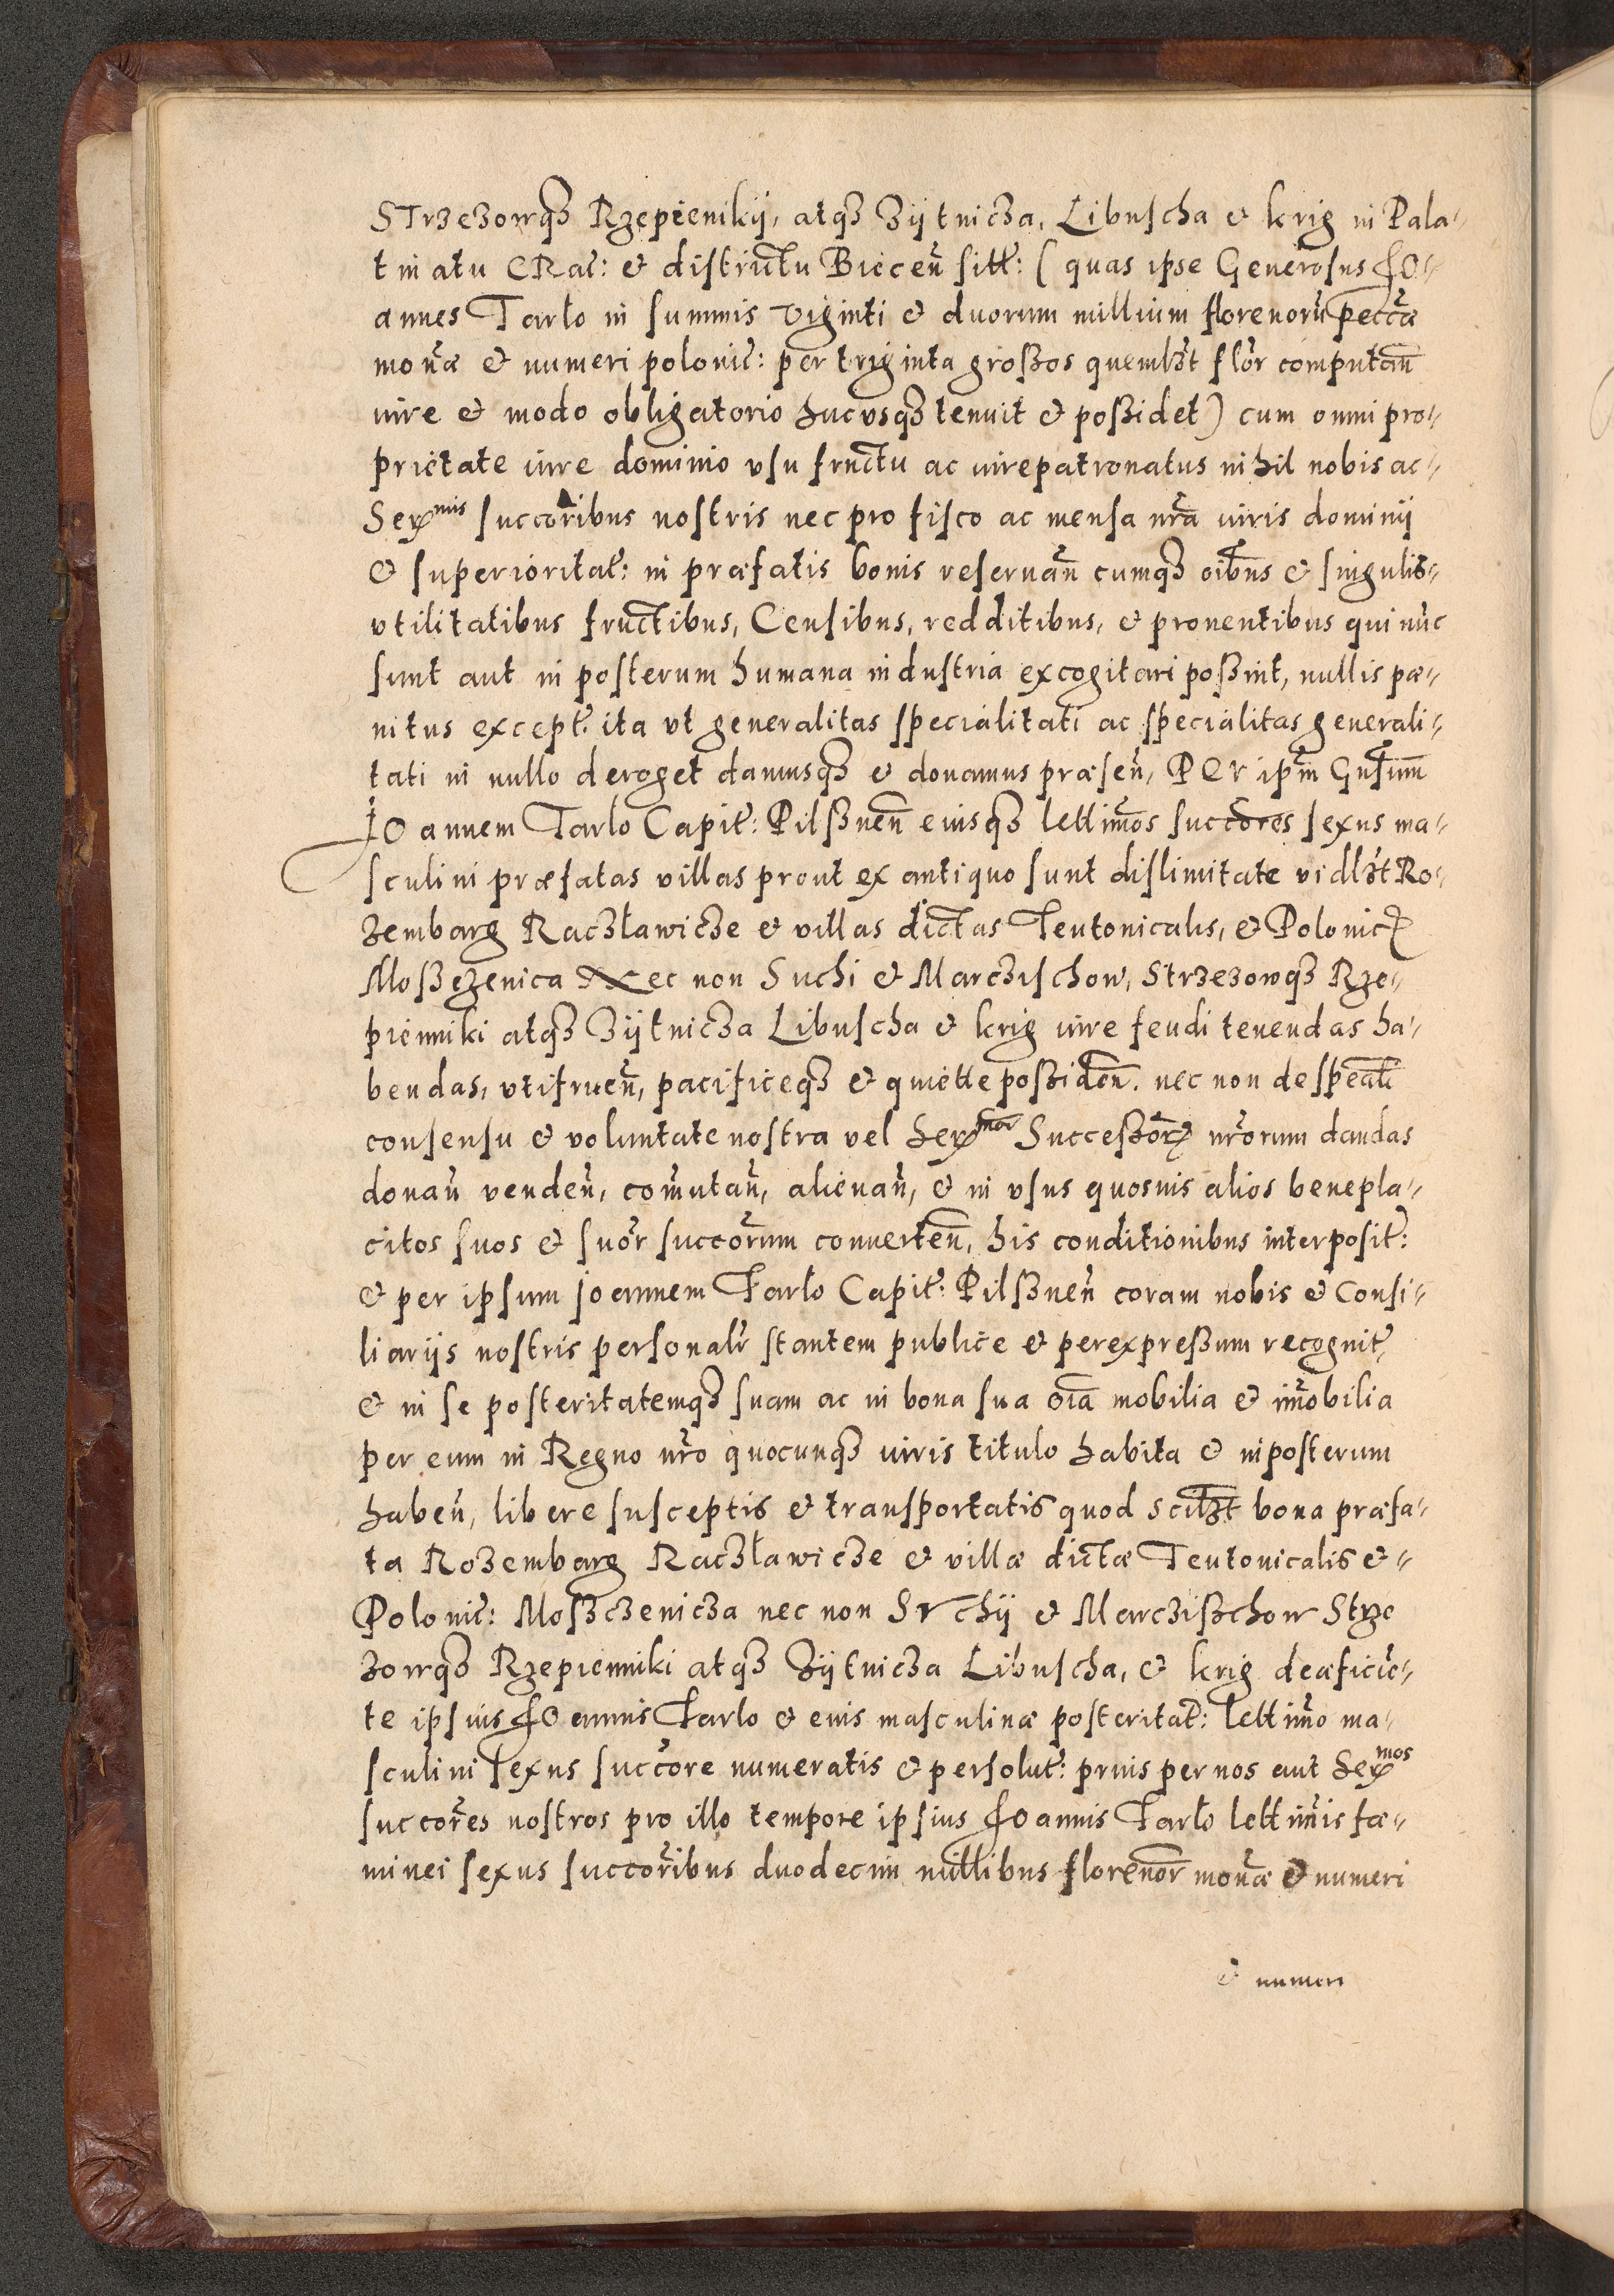 STrzezowqꝫ Rzepienikij, atqꝫ Zijtnicza, Libuscha & krig in Pala-
tinatu CRac: & districtu Biecen̄ sitt: (quas ipse Generosus Jo-
annes Tarło in summis viginti & duorum millium florenorū pecc̄æ
mon̄æ & numeri polonic: per triginta großos quemlꝫt flor̄ computan̄
iure & modo obligatorio hucusqꝫ tenuit & poßidet) cum omni pro-
prietate iure dominio usu fructu ac iure patronatus nihil nobis ac-
Serꝫmis succoribus nostris nec pro fisco ac mensa nr̄a iuris dominij
& superioritat: in præfatis bonis reseruan̄ cumqꝫ oībus & singulis-
vtilitatibus fructibus, Censibus, redditibus, & prouentibus qui nūc
sunt aut in posterum humana industria excogitari poßint, nullis pæ-
nitus except: ita ut generalitas specialitati ac specialitas generali-
tati in nullo deroget damusqꝫ & donamus præsen̄, PEr ip̄m Gn̄sum
Joannem Tarło Capit: Pilßnen̄ eiusqꝫ lettimos succores sexus ma-
sculini præfatas villas prout ex antiquo sunt dislimitate vidlꝫt Ro-
zembarg Raczławicze & villas dictas Teutonicalis, & Polonicꝫ
Moßczenica Nec non Suchi & Marczischow, Strzezowqꝫ Rze-
pienniki atqꝫ Zijtnicza Libuscha & krig iure feudi tenendas ha-
bendas, utifruen̄, pacificeqꝫ & quiette poßiden̄. nec non de speāli
consensu & voluntate nostra vel Serꝫmor Succeßorꝫ nr̄orum dandas
donan̄ venden̄, com̄utan̄, alienan̄, & in usus quosuis alios benepla-
citos suos & suor̄ succor̄um conuerten̄, his conditionibus interposit:
& per ipsum Joannem Tarło Capit: Pilßnen̄ coram nobis & Consi-
liarijs nostris personalr̄ stantem publice & per expreßum recognit,
& in se posteritatemqꝫ suam ac in bona sua oīa mobilia & im̄obilia
per eum in Regno nr̄o quocunqꝫ iuris titulo habita & in posterum
haben̄, libere susceptis & transportatis quod scilꝫt bona præfa-
ta Rozembarg Raczławicze & villæ dictæ Teutonicalis &-
Polonic: Moßczenicza nec non SVchij & Marczißchow Strze
zowqꝫ Rzepienniki atqꝫ Zijtnicza Libuscha, & krig deæficiē-
te ipsius Joannis Tarło & eius masculinæ posteritat: lettimo ma-
sculini sexus succore numeratis & persolut: prius per nos aut Serꝫmos
succores nostros pro illo tempore ipsius Joannis Tarło lettimis fæ-
minei sexus succoribus duodecim millibus florenor̄ mon̄æ & numeri
& numeri